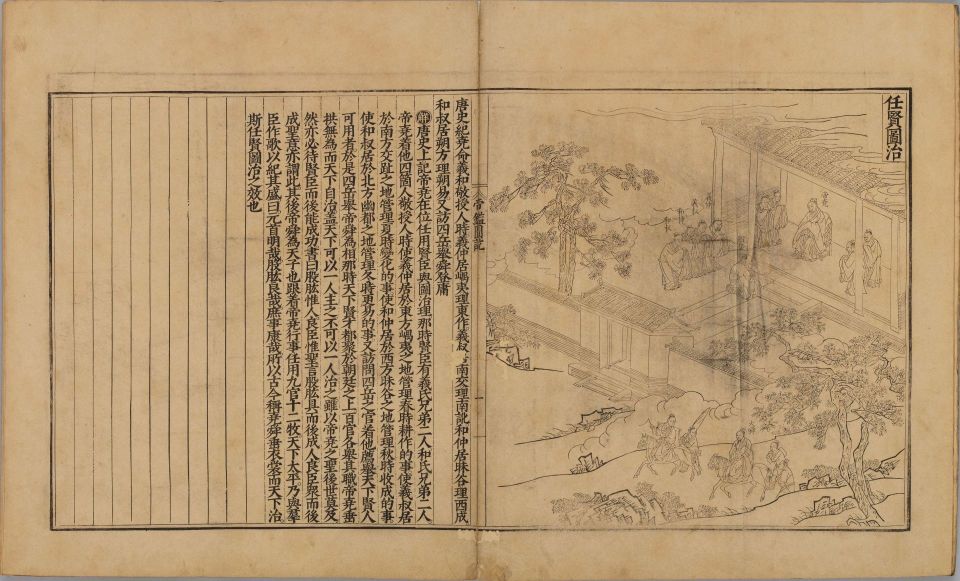 任賢圖治
唐史紀堯命羲和敬授人時羲仲居嵎夷理東作羲叔南交理南訛和仲居昧谷理西成
和叔居朔方理朔易又訪四岳舉舜登庸
解唐史上記帝堯在位任用賢臣與圖治理那時賢臣有羲氏兄弟二人和氏兄弟二人
帝堯着他四箇人敬授人時使羲仲居於東方嵎夷之地管理春時耕作的事使羲叔居
於南方交趾之地管理夏時變化的事使和仲居於西方昧谷之地管理秋時收成的事
使和叔居於北方幽都之地管理冬時更易的事又訪問四岳之官着他薦舉天下賢人
可用者於是四岳舉帝舜為相那時天下賢才都聚於朝廷之上百官各舉其職帝堯垂
拱無為而天下自治蓋天下可以一人主之不可以一人治之雖以帝堯之聖後世莫及
然亦必待賢臣而後能成功書曰股肱惟人良臣惟聖言股肱具而後成人良臣衆而後
成聖意亦謂此其後帝舜為天子也跟着帝堯行事任用九官十二牧天下太平乃與羣
臣作歌以紀其盛曰元首明哉股肱良哉庶事康哉所以古今稱堯舜垂衣裳而天下治
斯任賢圖治之效也